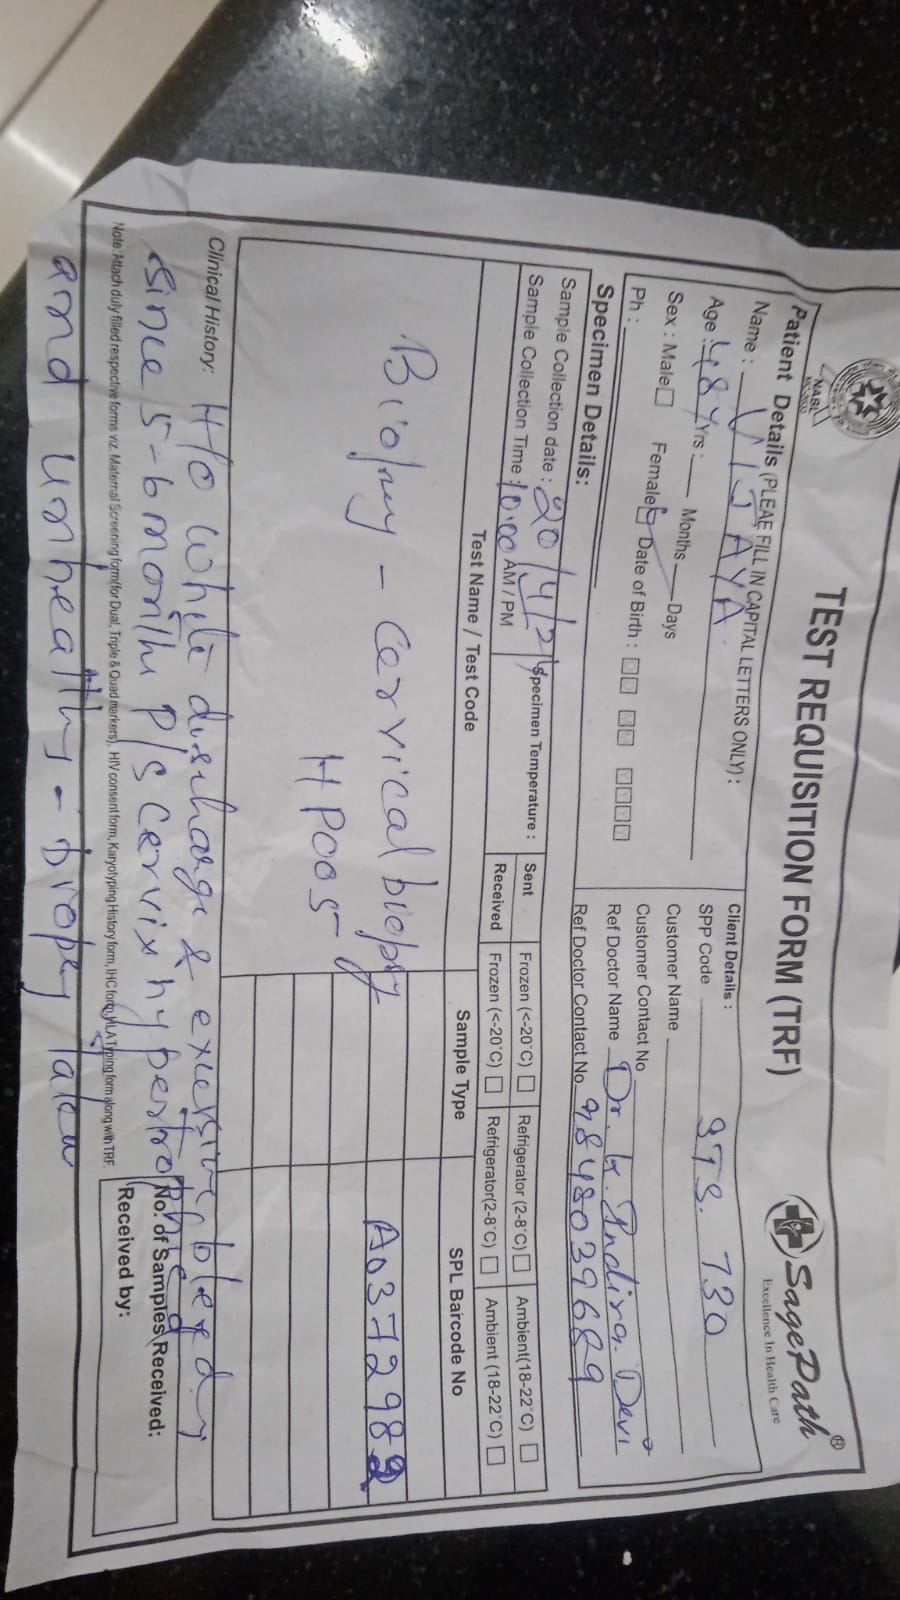 TEST REQUISITION FORM (TRF)
SagePath®
Excellence In Health Care
NABL
Patient Details (PLEAE FILL IN CAPITAL LETTERS ONLY) :
Name : VIJAYA.
Age : 48Y Yrs : Months Days
Sex : Male Female Date of Birth :
Ph :
Client Details :
SPP Code STS. 730
Customer Name
Customer Contact No
Ref Doctor Name Dr. K. Indira Devi
Ref Doctor Contact No 9848039689
Specimen Details:
Sample Collection date : 20/4/21
Sample Collection Time : 10:00 AM / PM
Specimen Temperature :
Sent Frozen (<-20°C) Refrigerator (2-8°C) Ambient(18-22°C)
Received Frozen (<-20°C) Refrigerator(2-8°C) Ambient (18-22°C)
Test Name / Test Code Sample Type SPL Barcode No
Biopsy - Cervical biopsy A0372982
HP005
Clinical History: H/O White discharge & excessive bleeding
since 5-6 months P/S cervix hypertrophied
No. of Samples Received:
Note: Attach duly filled respective forms viz. Maternal Screening form(for Dual, Triple & Quad markers), HIV consent form, Karyotyping History form, IHC form, HLA Typing form along with TRF.
Received by:
and unhealthy - biopsy taken